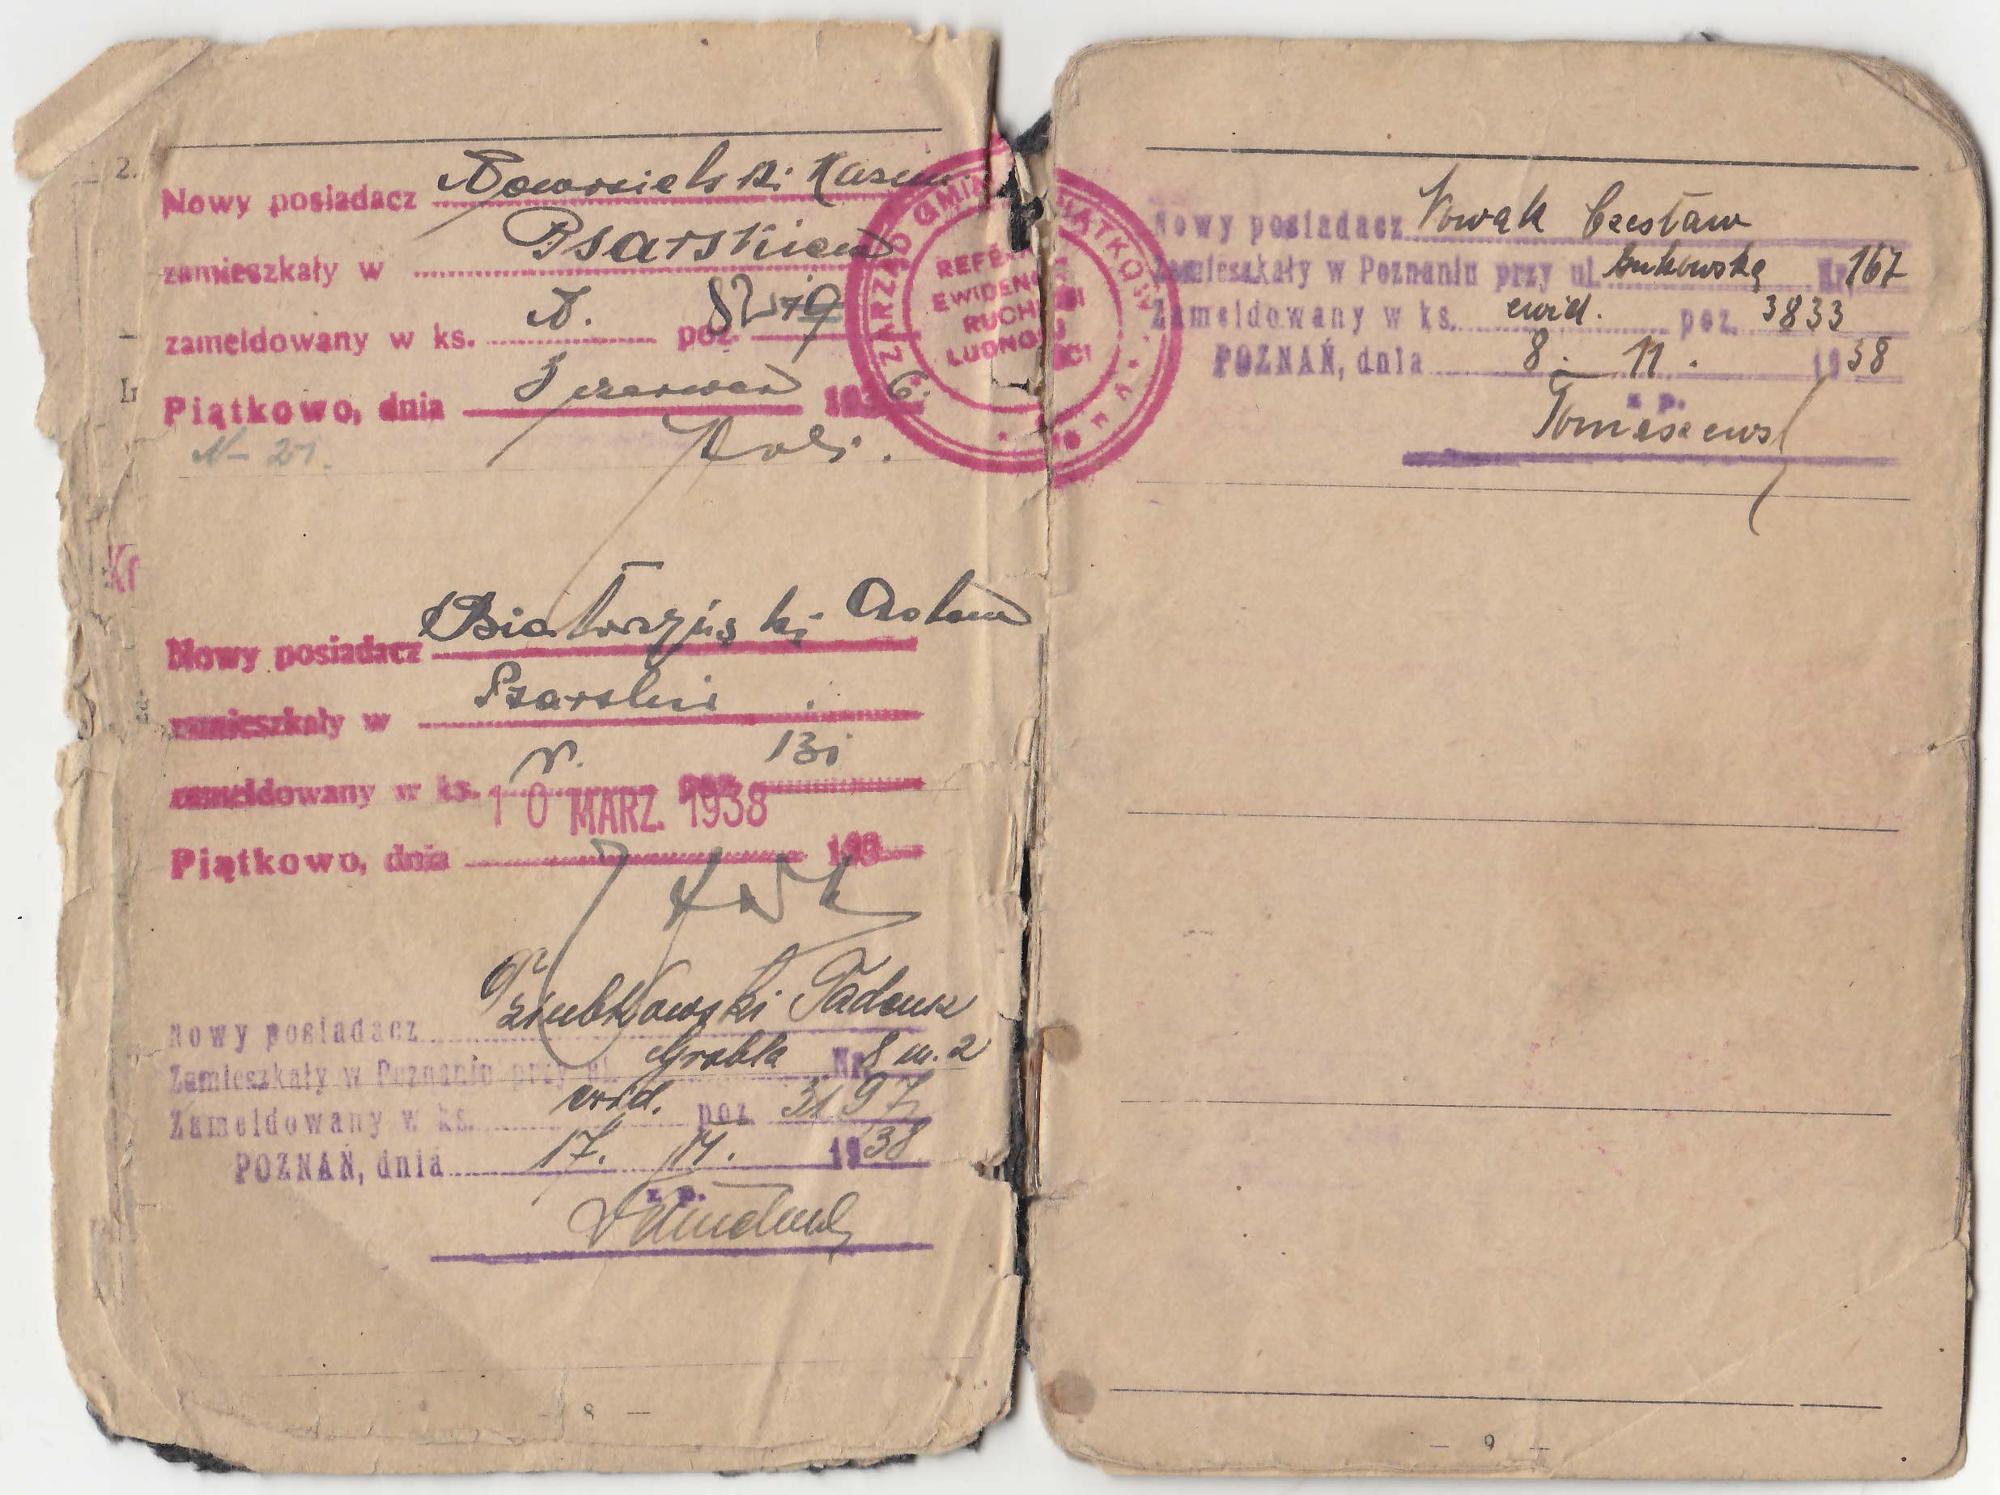 2.
Nowy posiadacz
zamieszkały w Psarskiem
zameldowany w ks. A. poz.
Piątkowo, dnia 3 czerwca 1936.
N- 21.
ZARZĄD GMINY PIĄTKOWO
REFERAT
EWIDENCJI
RUCHU
LUDNOŚCI
Kr
Nowy posiadacz
zamieszkały w Psarskie
zameldowany w ks. poz. 131
10 MARZ. 1938
Piątkowo, dnia 193
Nowy posiadacz Ziubkowski Tadeusz
Zamieszkały w Poznaniu przy ul. Grobla Nr 8 m. 2
Zameldowany w ks. ewid. poz. 3197
POZNAŃ, dnia 17. 1938
z p.
— 8 —
Nowy posiadacz Nowak Czesław
Zamieszkały w Poznaniu przy ul. Bukowska Nr 167
Zameldowany w ks. ewid. poz. 3833
POZNAŃ, dnia 8. 11. 1938
z p.
— 9 —